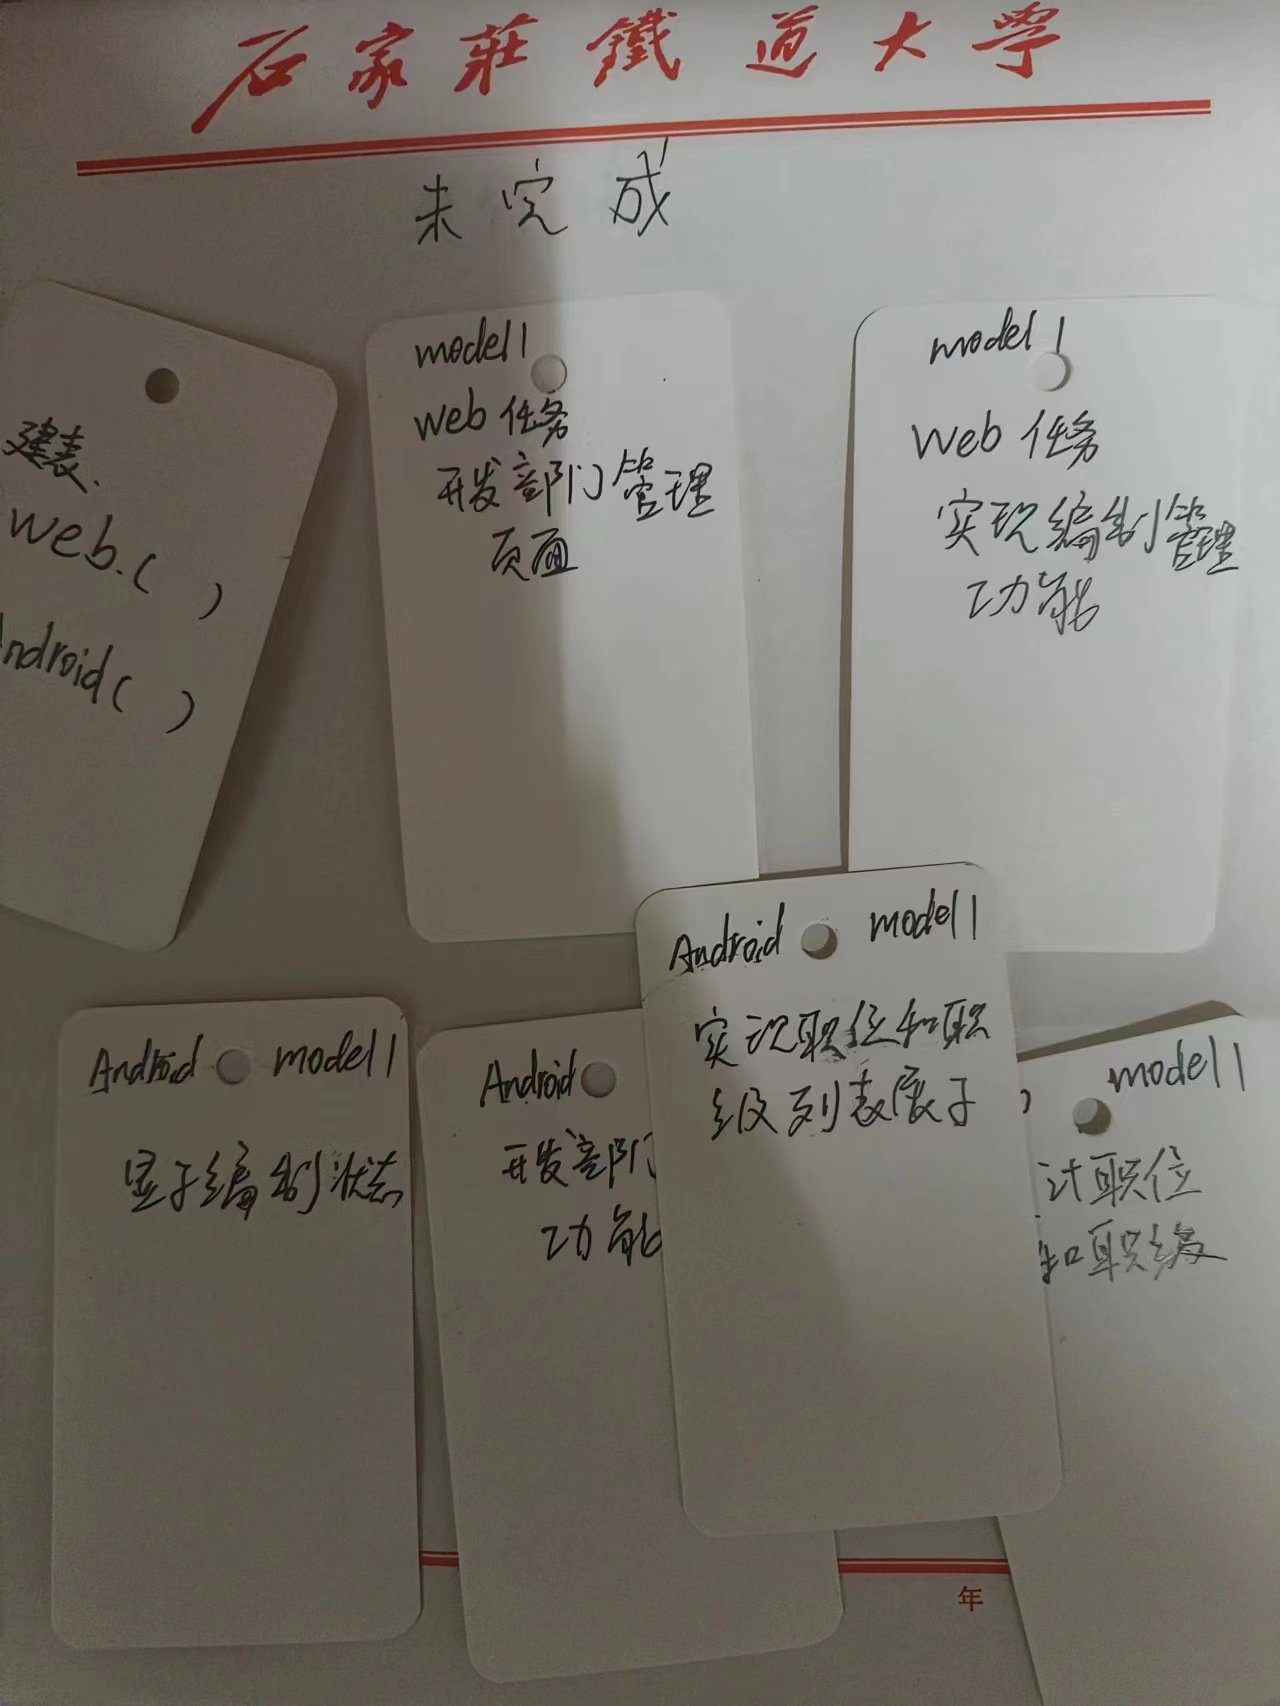 石家莊鐵道大學
未完成
建表.
web.( )
Android( )
model 1
web 任务
开发部门管理
页面
model 1
Web 任务
实现编制管理
功能
Android model 1
显于编制状态
Android
开发部门
功能
Android model 1
实现职位和职
级列表展于
model 1
计职位
和职级
年